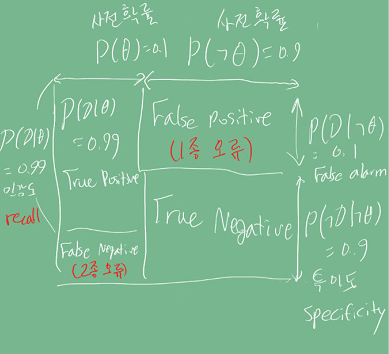 사전확률 사전확률
P(θ)=0.1 P(¬θ)=0.9
P(D|θ)
= 0.99
민감도
recall
P(D|θ)
= 0.99
True Positive
False Negative
(2종 오류)
False positive
(1종 오류)
True Negative
P(D|¬θ)
= 0.1
False alarm
P(¬D|¬θ)
= 0.9
특이도
specificity